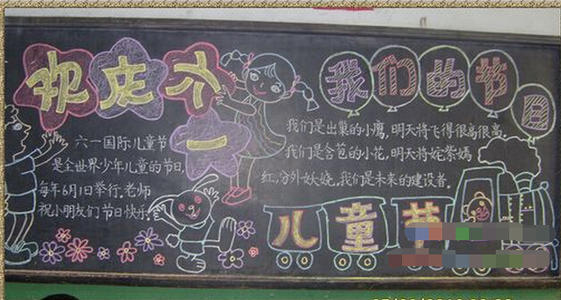 欢庆六一
六一国际儿童节
是全世界少年儿童的节日,
每年6月1日举行.老师
祝小朋友们节日快乐
我们的节日
我们是出巢的小鹰,明天将飞得很高很高.
我们是含苞的小花,明天将姹紫嫣
红,分外妖娆.我们是未来的建设者.
儿童节